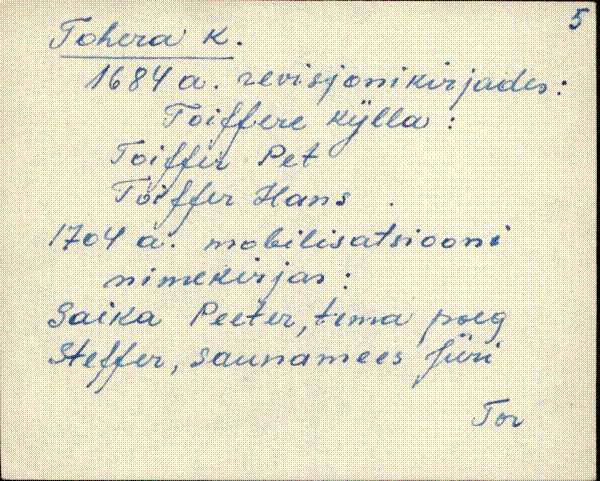 5
Tohera k.
1684 a. revisjonikirjades:
Toiffere Kÿlla:
Toiffer Pet
Toiffer Hans.
1704 a. mobilisatsiooni
nimekirjas:
Saika Peeter, tema poeg
Steffer, saunamees Jüri
Tor